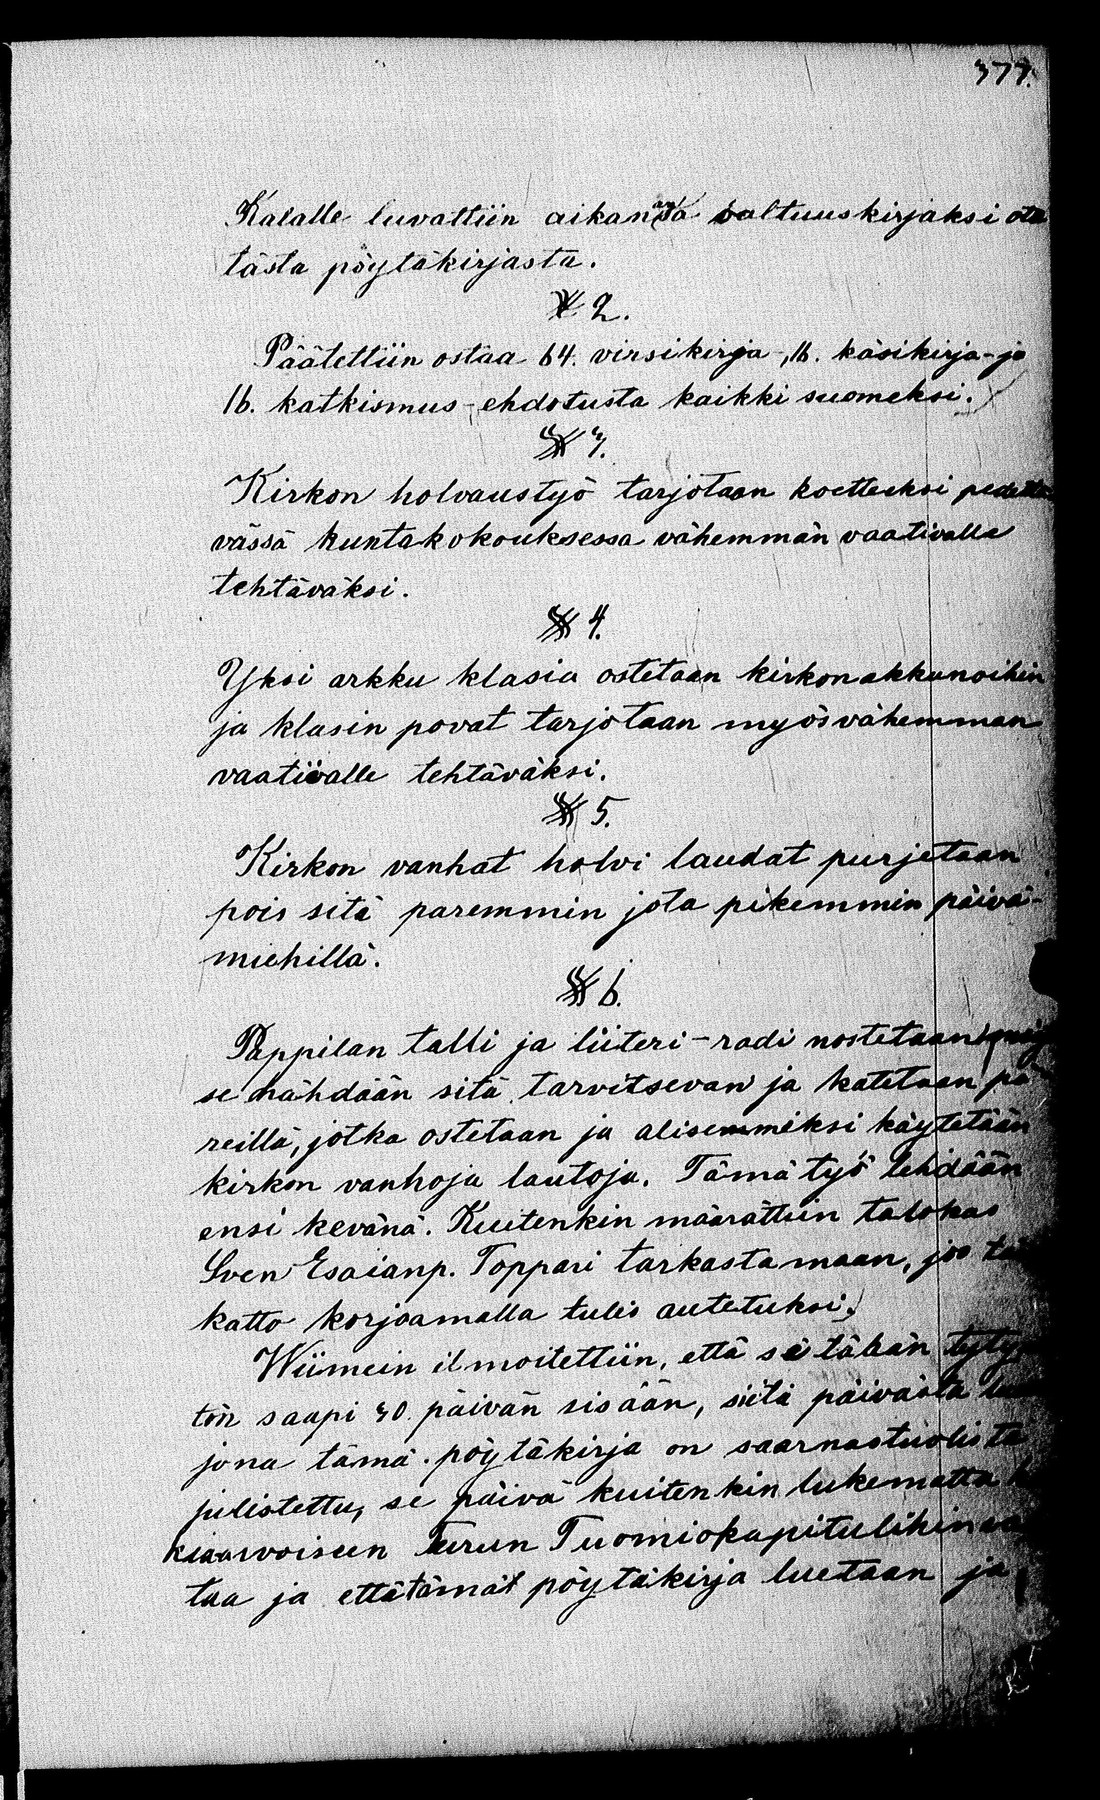 377.
Kalalle luvattiin aikanansa valtuuskirjaksi ote
tästä pöytäkirjasta.
§ 2.
Päätettiin ostaa 64. virsikirja-, 16. käsikirja- ja
16. katkismus-ehdotusta kaikki suomeksi.
§ 3.
Kirkon holvaustyö tarjotaan koetteeksi pidettä
vässä kuntakokouksessa vähemmän vaativalle
tehtäväksi.
§ 4.
Yksi arkku klasia ostetaan kirkon akkunoihin
ja klasin povat tarjotaan myös vähemman
vaativalle tehtäväksi.
§ 5.
Kirkon vanhat holvi laudat purjetaan
pois sitä paremmin jota pikemmin päivä-
miehillä.
§ 6.
Pappilan talli ja liiteri-radi nostetaan
se nähdään sitä tarvitsevan ja katetaan pä
reillä, jotka ostetaan ja alisemmiksi käytetään
kirkon vanhoja lautoja. Tämä työ tehdään
ensi kevänä. Kuitenkin määrättiin talokas
Sven Esaianp. Toppari tarkastamaan, jos
katto korjoamalla tulis autetuksi.
Wiimein ilmoitettiin, että se tähän tyty
tön saapi 30. päivän sisään, siitä päivästä
jona tämä pöytäkirja on saarnastuolista
julistettu, se päivä kuitenkin lukematta
kiaarvoiseen Turun Tuomiokapitulihin
taa ja että tämät pöytäkirja luetaan ja